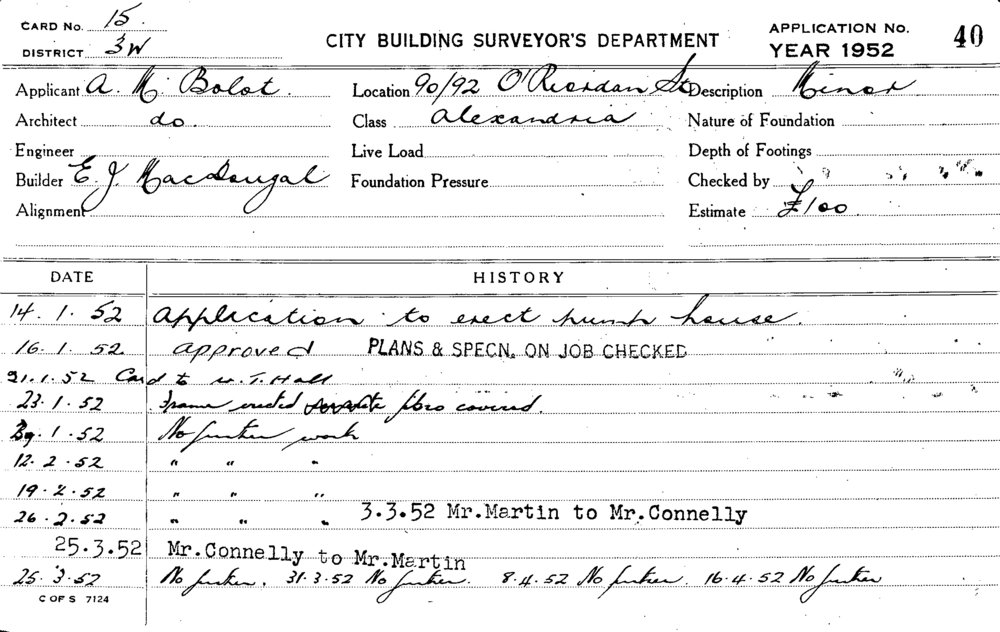 CARD No. 15.
DISTRICT 3W
CITY BUILDING SURVEYOR'S DEPARTMENT
APPLICATION No. 40
YEAR 1952
Applicant A. M. Bolot. Location 90/92 O'Riordan St Description Minor
Architect do. Class Alexandria Nature of Foundation
Engineer Live Load Depth of Footings
Builder E. J. MacDougal Foundation Pressure Checked by
Alignment Estimate £100
DATE HISTORY
14.1.52 Application to erect pump house.
16.1.52. approved PLANS & SPECN. ON JOB CHECKED
21.1.52 Card to W. T. Hall
23.1.52 Frame erected fibro covered.
29.1.52 No further work
12.2.52 " " "
19.2.52 " " "
26.2.52 " " " 3.3.52 Mr.Martin to Mr.Connelly
25.3.52 Mr.Connelly to Mr.Martin
25.3.52 No further. 31.3.52 No further. 8.4.52 No further. 16.4.52 No further
C OF S 7124